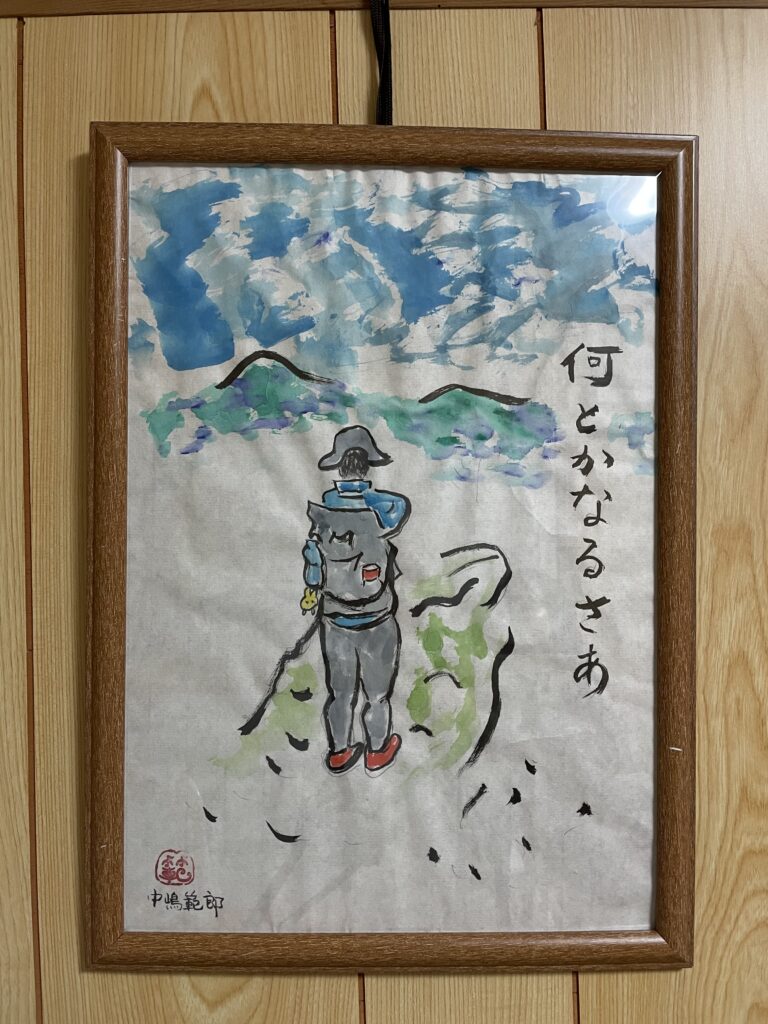 何とかなるさあ
中嶋範郎